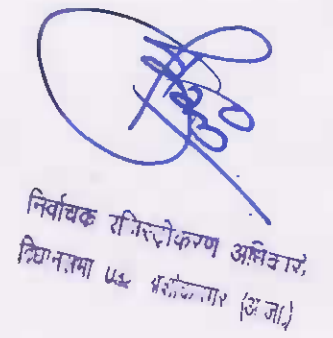 निर्वाचक रजिस्ट्रीकरण अधिकारी
विधानसभा अशोकनगर (अ.जा.)